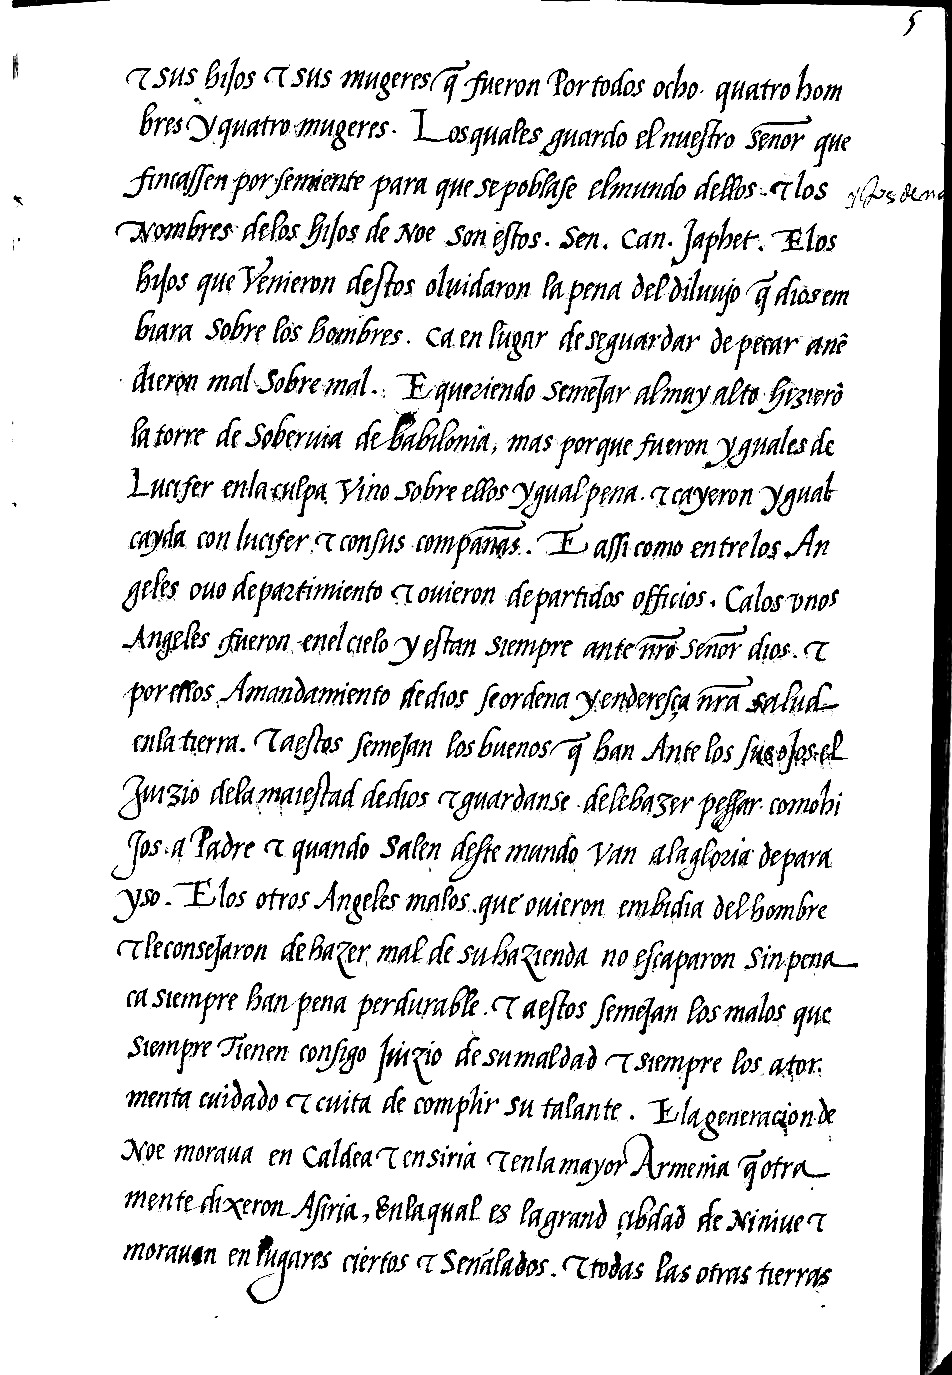 5
⁊ sus hijos ⁊ sus mugeres q̃ fueron Por todos ocho. quatro hom
bres y quatro mugeres. Los quales guardo el nuestro señor que
fincassen por semiente para que se poblase el mundo dellos. ⁊ los
Nombres de los hijos de Noe son estos. Sen. Can. Japhet. E los
hijos que Venieron destos oluidaron la pena del diluujo q̃ dios em
biara sobre los hombres. ca en lugar de se guardar de pecar anẽ
dieron mal sobre mal. E queriendo semejar al muy alto hizierõ
la torre de Soberuia de babilonia, mas porque fueron yguales de
Lucifer en la culpa Vino sobre ellos ygual pena. ⁊ cayeron ygual
cayda con lucifer ⁊ con sus compañas. E assi como entre los An
geles ouo departimiento ⁊ ouieron departidos officios. Ca los vnos
Angeles fueron en el cielo y estan siempre ante nr̃o señor dios. ⁊
por ellos Amandamiento de dios se ordena y enderesça nr̃a salud
en la tierra. ⁊ a estos semejan los buenos q̃ han Ante los sus ojos el
Juizio de la maiestad de dios ⁊ guardanse de le hazer pessar como hi
jos a Padre ⁊ quando salen deste mundo van a la gloria de para
yso. E los otros Angeles malos que ouieron embidia del hombre
⁊ le consejaron de hazer mal de su hazienda no escaparon sin pena
ca siempre han pena perdurable. ⁊ a estos semejan los malos que
siempre Tienen consigo Juizio de su maldad ⁊ siempre los ator
menta cuidado ⁊ cuita de complir su talante. E la generacion de
Noe moraua en Caldea ⁊ en siria ⁊ en la mayor Armenia q̃ otra
mente dixeron Asiria, en la qual es la grand çibdad de Niniue ⁊
morauan en lugares ciertos ⁊ Señalados. ⁊ todas las otras tierras